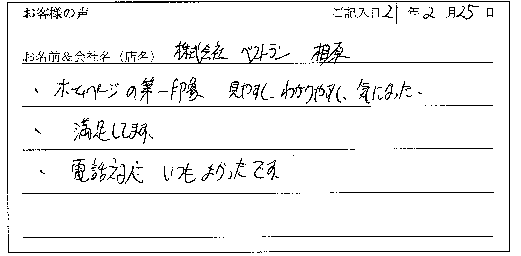 お客様の声 ご記入日21年2月25日
お名前&会社名（店名） 株式会社 ベストラン 相原
、ホームページの第一印象 見やすく、わかりやすく、気に入った。
、満足してます。
、電話対応 いつもよかったです。